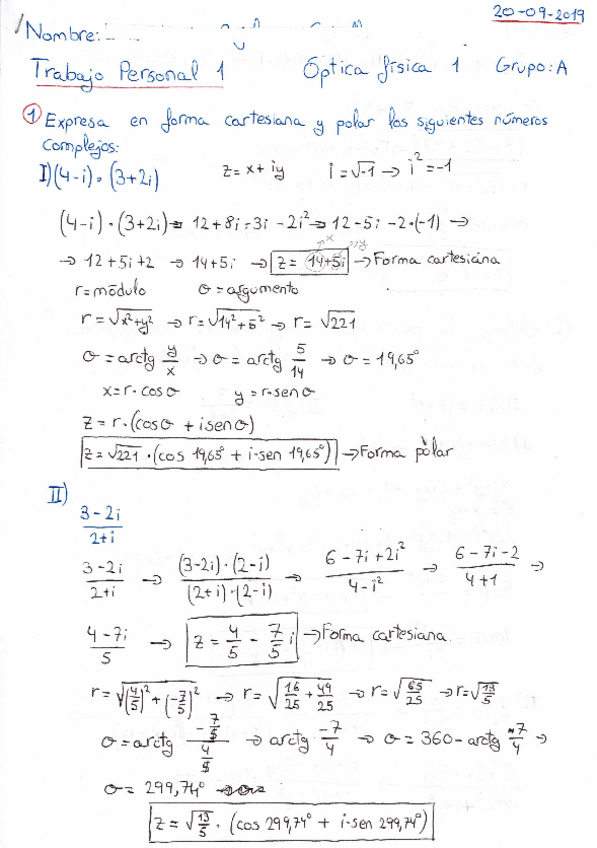 20-09-2019
Nombre:
Trabajo Personal 1 Óptica física 1 Grupo: A
① Expresa en forma cartesiana y polar los siguientes números
complejos:
I) (4-i)·(3+2i) z = x + iy i = √-1 → i² = -1
(4-i)·(3+2i) = 12+8i-3i-2i² = 12-5i-2·(-1) →
→ 12+5i+2 → 14+5i → z = 14+5i → Forma cartesiana
r = módulo σ = argumento
r = √x²+y² → r = √14²+5² → r = √221
σ = arctg y/x → σ = arctg 5/14 → σ = 19,65°
x = r·cos σ y = r·sen σ
z = r·(cos σ + i sen σ)
z = √221·(cos 19,65° + i·sen 19,65°) → Forma polar
II)
3-2i/2+i
3-2i/2+i → (3-2i)·(2-i)/(2+i)·(2-i) → 6-7i+2i²/4-i² → 6-7i-2/4+1 →
4-7i/5 → z = 4/5 - 7/5 i → Forma cartesiana.
r = √(4/5)²+(-7/5)² → r = √16/25+49/25 → r = √65/25 → r = √13/5
σ = arctg -7/5/4/5 → arctg -7/4 → σ = 360-arctg -7/4 →
σ = 299,74°
z = √13/5·(cos 299,74° + i·sen 299,74°)